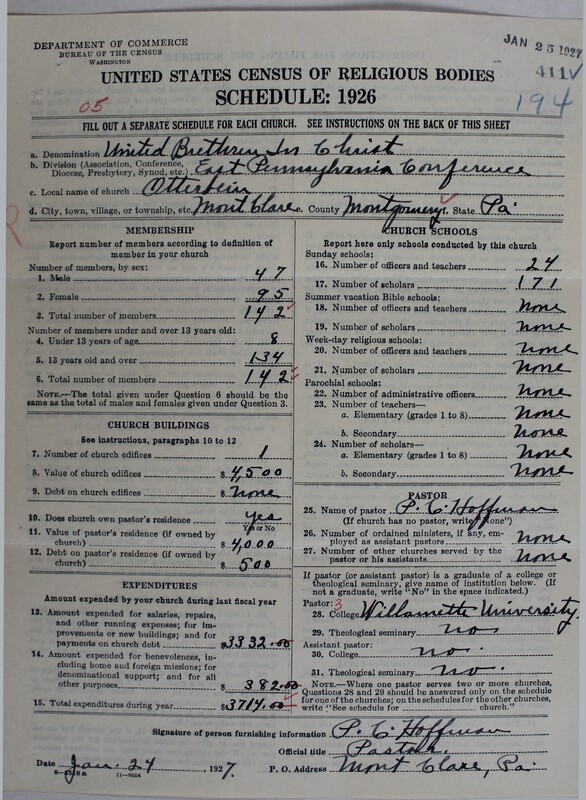 DEPARTMENT OF COMMERCE
BUREAU OF THE CENSUS
WASHINGTON
JAN 25 1927
411V
194
UNITED STATES CENSUS OF RELIGIOUS BODIES
SCHEDULE: 1926
05
FILL OUT A SEPARATE SCHEDULE FOR EACH CHURCH. SEE INSTRUCTIONS ON THE BACK OF THIS SHEET
a. Denomination United Brethren In Christ
b. Division (Association, Conference,
Diocese, Presbytery, Synod, etc.) East Pennsylvania Conference
c. Local name of church Otterbein
d. City, town, village, or township, etc. Mont Clare e. County Montgomery f. State Pa.
MEMBERSHIP
Report number of members according to definition of
member in your church
Number of members, by sex:
1. Male 47
2. Female 95
3. Total number of members 142
Number of members under and over 13 years old:
4. Under 13 years of age 8
5. 13 years old and over 134
6. Total number of members 142
NOTE.—The total given under Question 6 should be the
same as the total of males and females given under Question 3.
CHURCH BUILDINGS
See instructions, paragraphs 10 to 12
7. Number of church edifices 1
8. Value of church edifices $ 4,500
9. Debt on church edifices $ None
10. Does church own pastor's residence Yes
Yes or No
11. Value of pastor's residence (if owned by
church) $ 4,000
12. Debt on pastor's residence (if owned by
church) $ 500
EXPENDITURES
Amount expended by your church during last fiscal year
13. Amount expended for salaries, repairs,
and other running expenses; for im-
provements or new buildings; and for
payments on church debt $ 3332.00
14. Amount expended for benevolences, in-
cluding home and foreign missions; for
denominational support; and for all
other purposes $ 382.00
15. Total expenditures during year $ 3714.00
CHURCH SCHOOLS
Report here only schools conducted by this church
Sunday schools:
16. Number of officers and teachers 24
17. Number of scholars 171
Summer vacation Bible schools:
18. Number of officers and teachers None
19. Number of scholars None
Week-day religious schools:
20. Number of officers and teachers None
21. Number of scholars None
Parochial schools:
22. Number of administrative officers None
23. Number of teachers—
a. Elementary (grades 1 to 8) None
b. Secondary None
24. Number of scholars—
a. Elementary (grades 1 to 8) None
b. Secondary None
PASTOR
25. Name of pastor P. C. Hoffman
(If church has no pastor, write "None")
26. Number of ordained ministers, if any, em-
ployed as assistant pastors None
27. Number of other churches served by the
pastor or his assistants None
If pastor (or assistant pastor) is a graduate of a college or
theological seminary, give name of institution below. (If
not a graduate, write "No" in the space indicated.)
Pastor: 3
28. College Willamette University.
29. Theological seminary no.
Assistant pastor:
30. College no.
31. Theological seminary no.
NOTE.—Where one pastor serves two or more churches,
Questions 28 and 29 should be answered only on the schedule
for one of the churches; on the schedules for the other churches,
write "See schedule for church."
Signature of person furnishing information P. C. Hoffman
Official title Pastor.
Date Jan. 24, 1927. P. O. Address Mont Clare, Pa.
11—9054